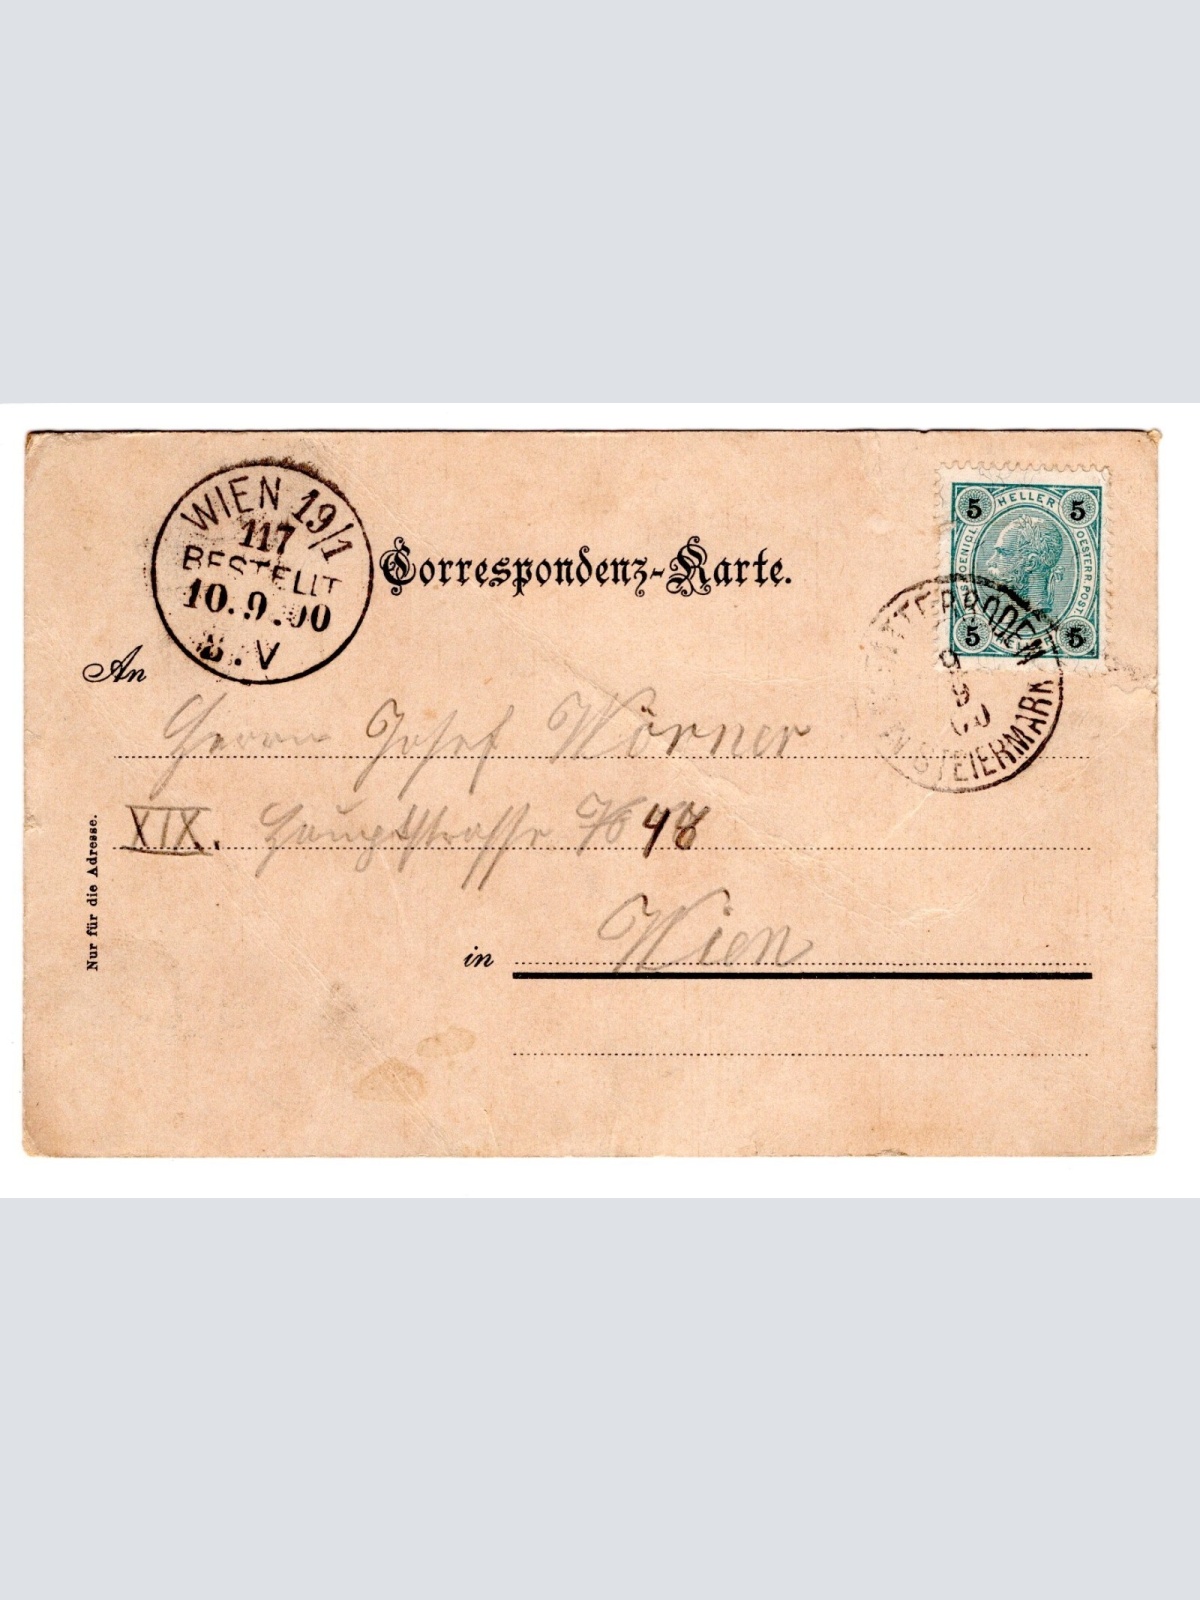 WIEN 19/1
117
BESTELLT
10. 9. 00
8. V
Correspondenz-Karte.
5 HELLER 5
OESTERR. POST.
5 5
9
9
00
IN STEIERMARK
An Herrn Josef Wörner
XIX. Hauptstrasse 48
in Wien
Nur für die Adresse.